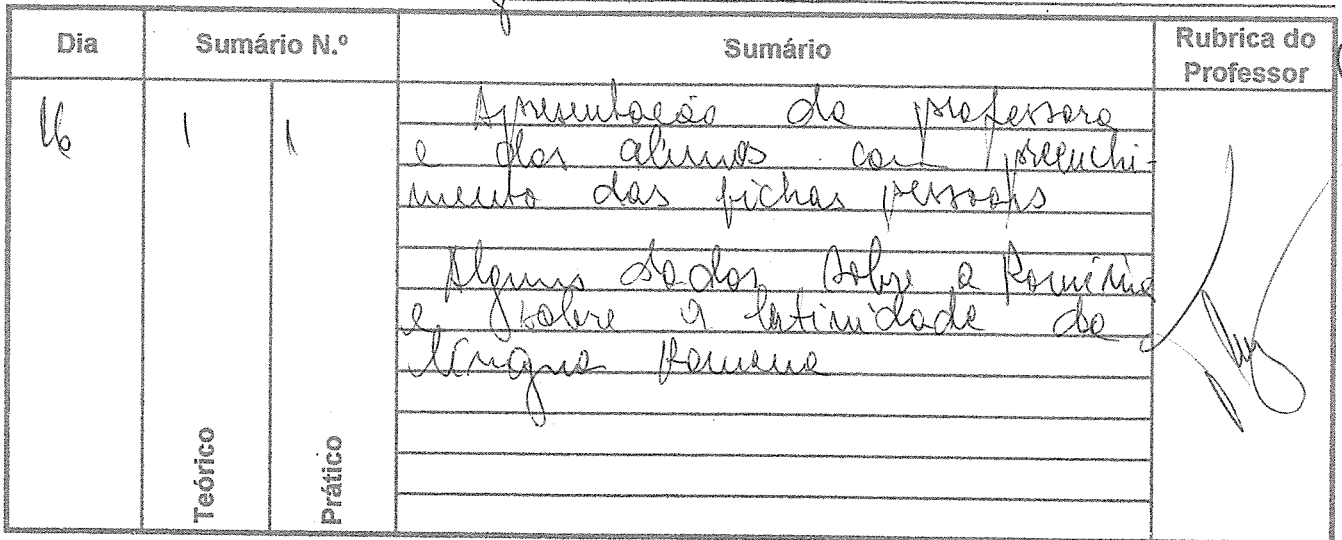 Dia Sumário N.º Sumário Rubrica do Professor
16 1 1
Apresentação da professora
e dos alunos com preenchi-
mento das fichas pessoais
Alguns dados sobre a Roménia
e sobre a latinidade da
língua romena
Teórico Prático